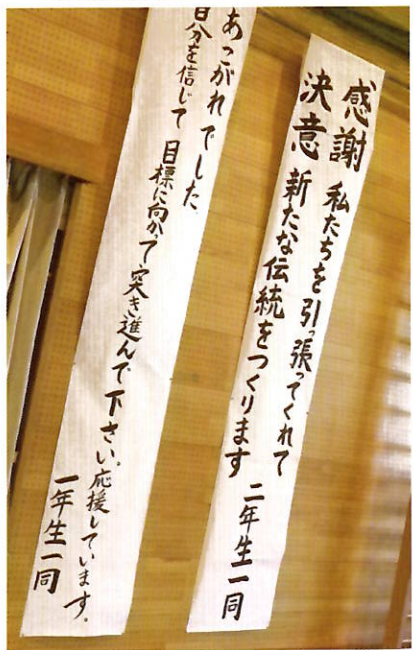 感謝 私たちを引っ張ってくれて
決意 新たな伝統をつくります
二年生一同
あこがれでした。
自分を信じて 目標に向かって突き進んで下さい。応援しています。
一年生一同